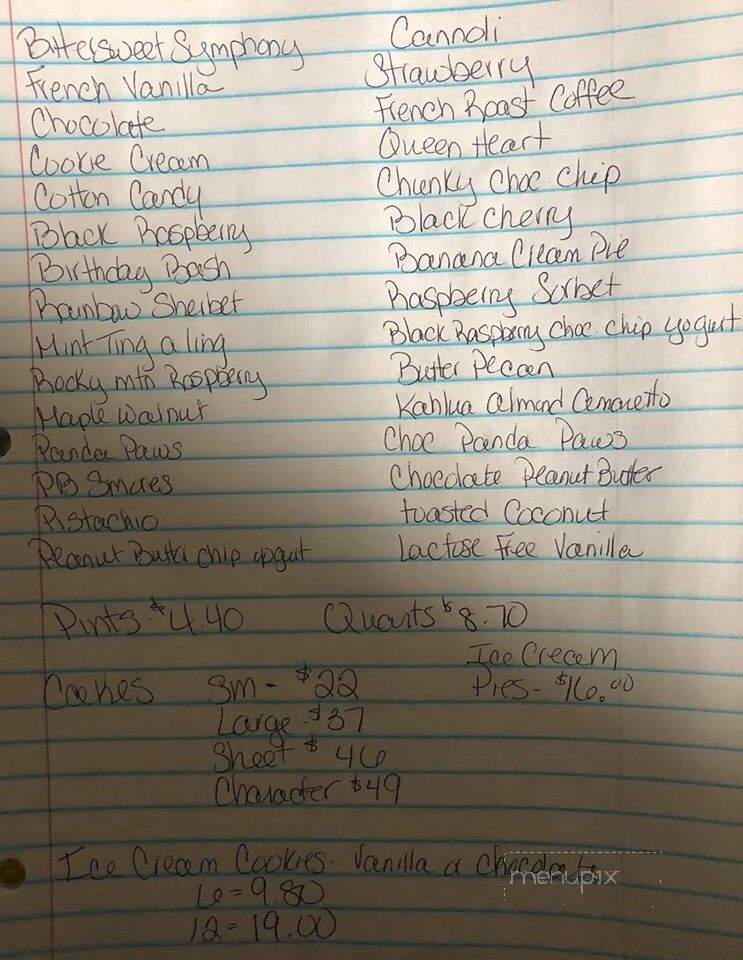 Bittersweet Symphony
French Vanilla
Chocolate
Cookie Cream
Cotton Candy
Black Raspberry
Birthday Bash
Rainbow Sherbet
Mint Ting a ling
Rocky mtn Raspberry
Maple Walnut
Panda Paws
PB Smores
Pistachio
Peanut Butta chip yogut
Cannoli
Strawberry
French Roast Coffee
Queen Heart
Chunky Choc. Chip
Black cherry
Banana Cream Pie
Raspberry Sorbet
Black Raspberry Choc. Chip yogurt
Butter Pecan
Kahlua Almond Amaretto
Choc. Panda Paws
Chocolate Peanut Butter
toasted Coconut
Lactose Free Vanilla
Pints - $4.40 Quarts $8.70
Ice Cream
Pies - $16.00
Cakes Sm - $22
Large - $37
Sheet $46
Character $49
Ice Cream Cookies - Vanilla or chocolate
6 = 9.80
12 = 19.00
menupix